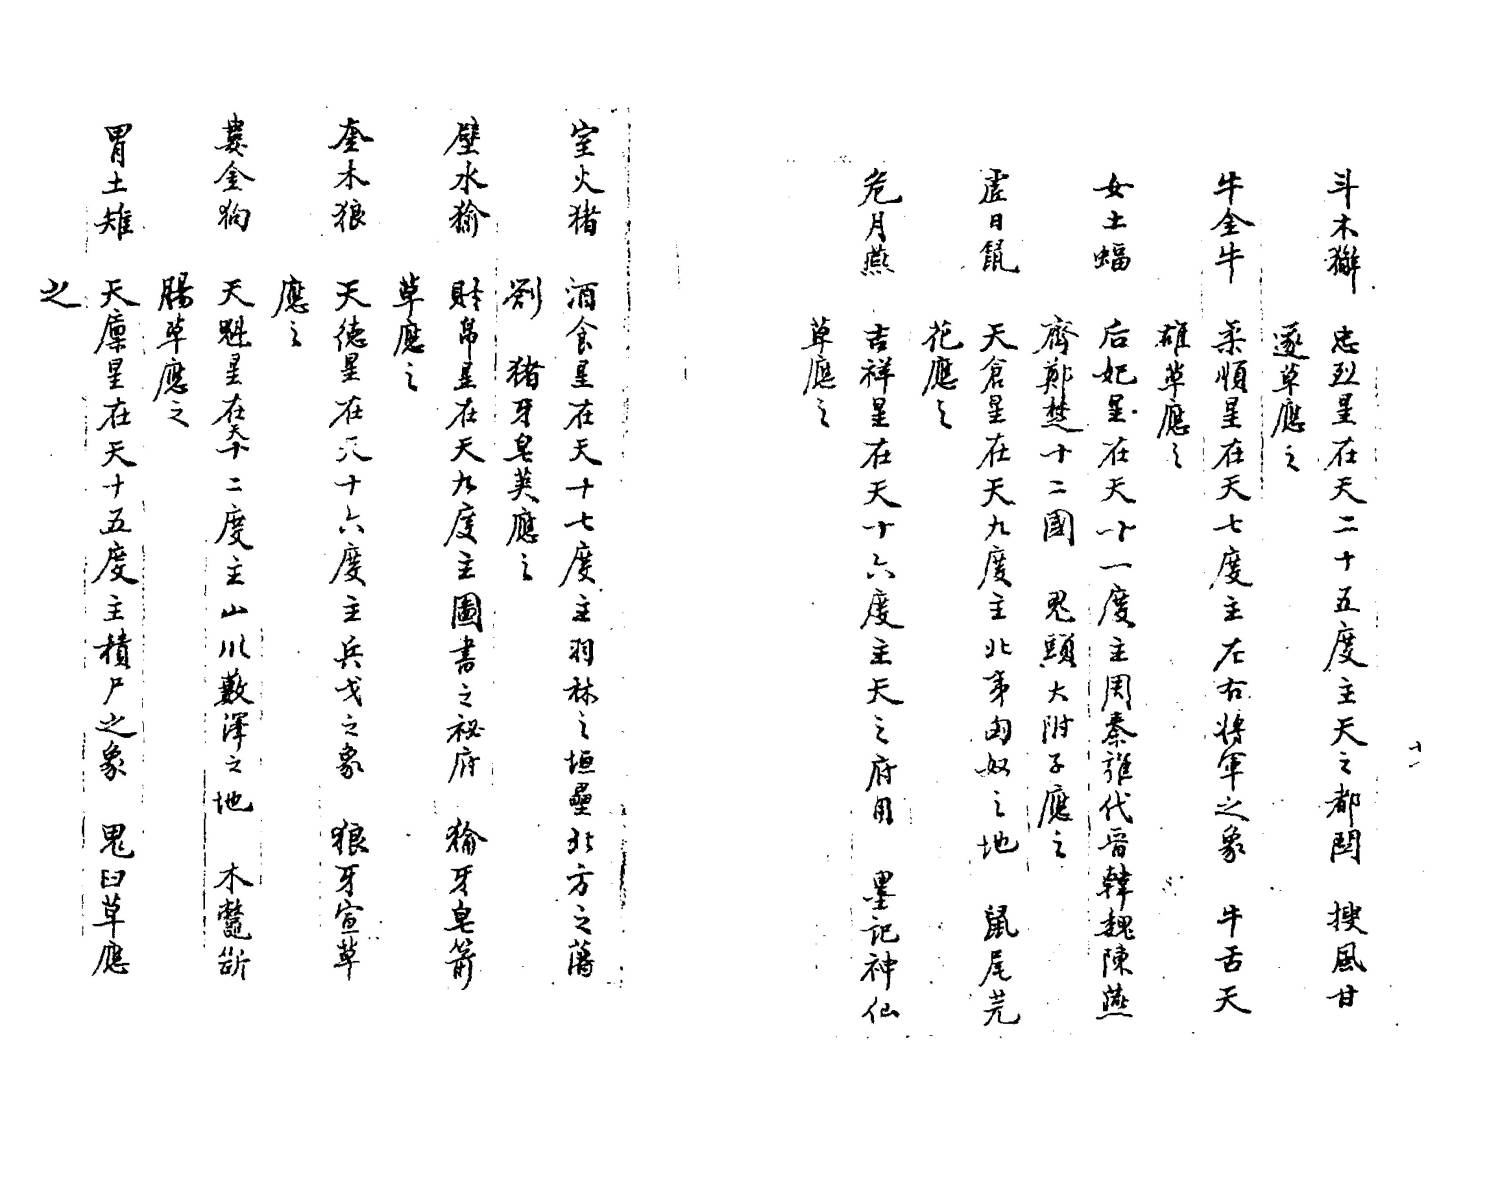 斗木獬　忠烈星在天二十五度主天之都關　搜風甘
遂草應之
牛金牛　柔順星在天七度主左右將軍之象　牛舌天
雄草應之
女土蝠　后妃星在天十一度主周秦雍代晉韓魏陳燕
齊鄭楚十二國　鬼頭大附子應之
虛日鼠　天倉星在天九度主北夷匈奴之地　鼠尾芫
花應之
危月燕　吉祥星在天十六度主天之府用　墨記神仙
草應之
十一
室火猪　酒食星在天十七度主羽林之垣壘北方之藩
劄　猪牙皂莢應之
壁水㺄　財帛星在天九度主圖書之祕府　㺄牙皂箭
草應之
奎木狼　天德星在天十六度主兵戈之象　狼牙宣草
應之
婁金狗　天魁星在天十二度主山川藪澤之地　木鱉斷
腸草應之
胃土雉　天廩星在天十五度主積尸之象　鬼臼草應
之